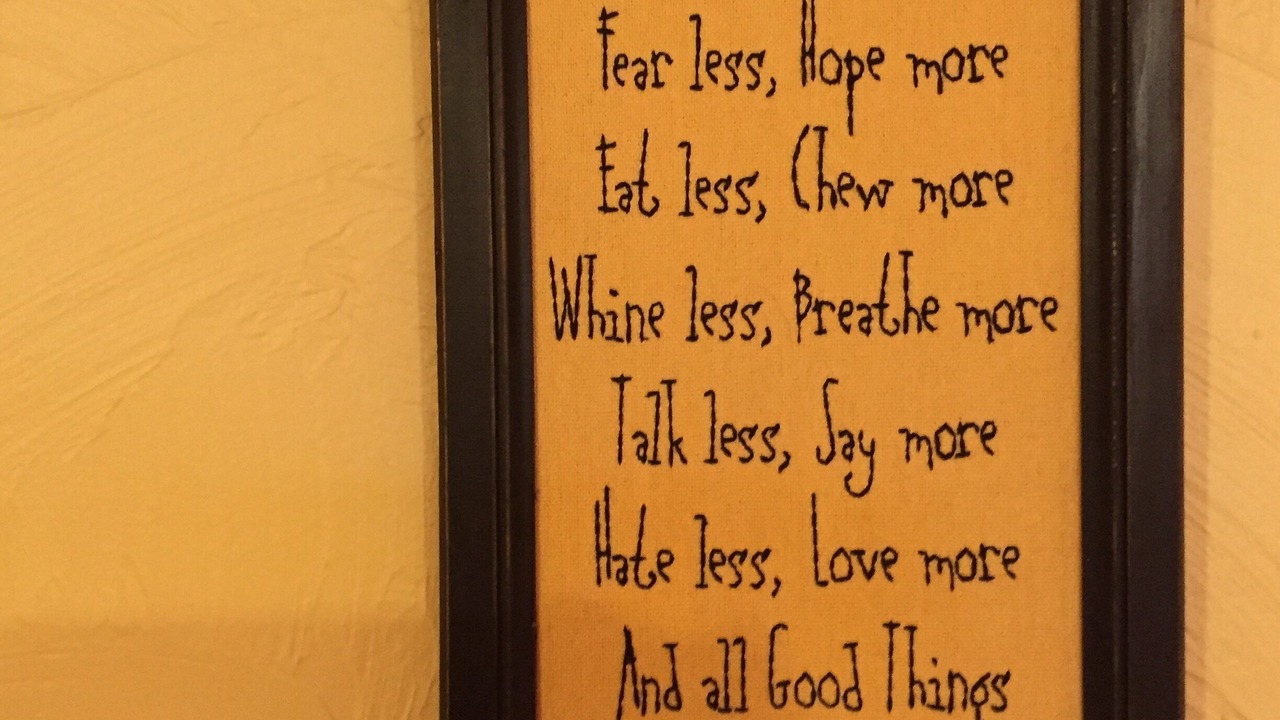 Fear less, Hope more
Eat less, Chew more
Whine less, Breathe more
Talk less, Say more
Hate less, Love more
And all Good Things